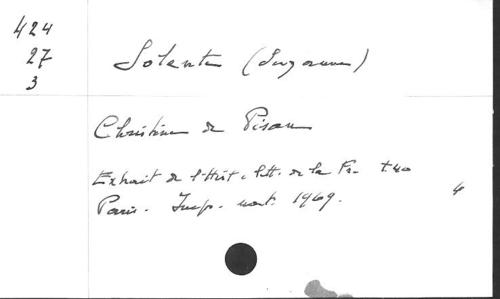 424
27
3
Solente (Suzanne)
Christine de Pisan
Extrait de l'Hist. litt. de la Fr. t. 40
Paris. Imp. nat. 1969.
4